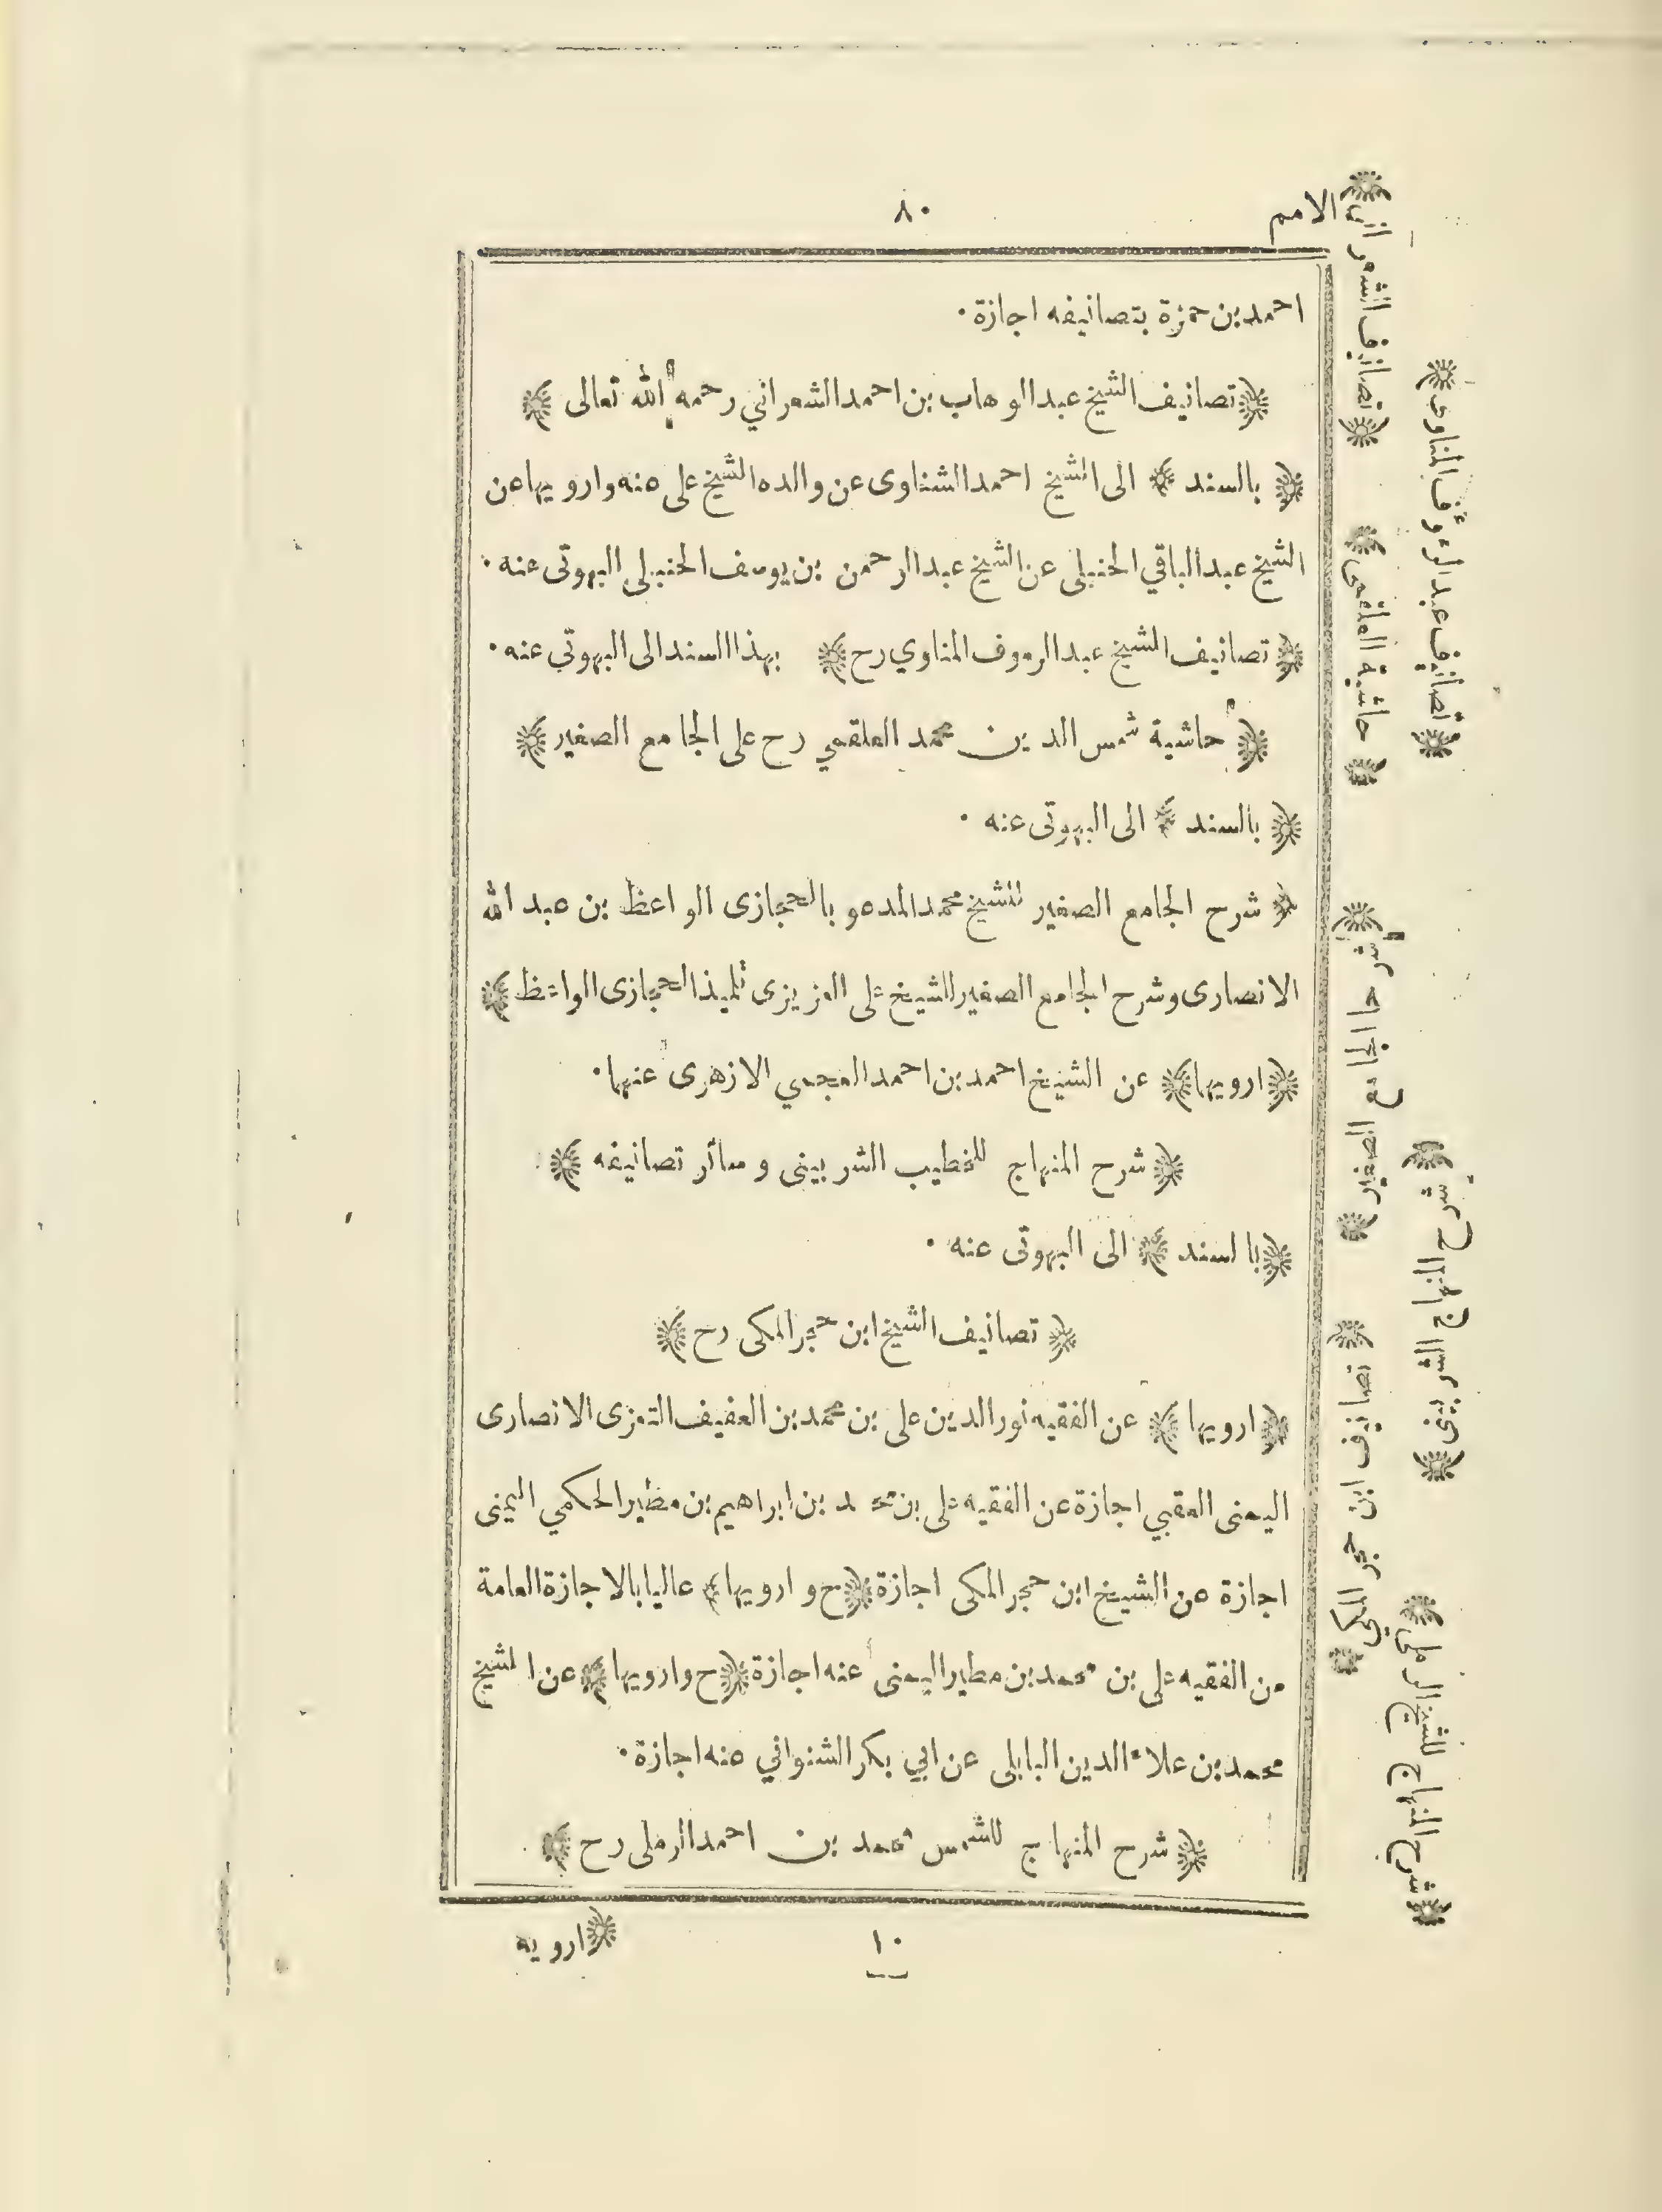 الامم
٨٠
احمد بن حمزة بتصانيفه اجازة ·
﴿ تصانيف الشيخ عبد الوهاب بن احمد الشعراني رحمه الله تعالى ﴾
﴿ بالسند ﴾ الى الشيخ احمد الشناوى عن والده الشيخ على عنه وارويها عن
الشيخ عبد الباقي الحنبلى عن الشيخ عبد الرحمن بن يوسف الحنبلى البهوتى عنه ·
﴿ تصانيف الشيخ عبد الرءوف المناوي رح ﴾ بهذا السند الى البهوتي عنه ·
﴿ حاشية شمس الدين محمد العلقمي رح على الجامع الصغير ﴾
﴿ بالسند ﴾ الى البهوتى عنه ·
﴿ شرح الجامع الصغير للشيخ محمد المدعو بالحجازى الواعظ بن عبد الله
الانصارى وشرح الجامع الصغير للشيخ على العزيزى تلميذ الحجازى الواعظ ﴾
﴿ ارويها ﴾ عن الشيخ احمد بن احمد العجمي الازهرى عنهما ·
﴿ شرح المنهاج للخطيب الشربينى وسائر تصانيفه ﴾
﴿ بالسند ﴾ الى البهوتى عنه ·
﴿ تصانيف الشيخ ابن حجر المكى رح ﴾
﴿ ارويها ﴾ عن الفقيه نور الدين على بن محمد بن العفيف التعزى الانصارى
اليمنى العقبي اجازة عن الفقيه على بن محمد بن ابراهيم بن مطير الحكمي اليمنى
اجازة عن الشيخ ابن حجر المكى اجازة ﴿ ح وارويها ﴾ عاليا بالاجازة العامة
من الفقيه على بن محمد بن مطير اليمنى عنه اجازة ﴿ ح وارويها ﴾ عن الشيخ
محمد بن علاء الدين البابلى عن ابي بكر الشنواني عنه اجازة ·
﴿ شرح المنهاج للشمس محمد بن احمد الرملى رح ﴾
١٠
﴿ ارويه
﴿ تصانيف الشعرانى ﴾
﴿ تصانيف عبد الرءوف المناوى ﴾
﴿ حاشية العلقمى ﴾
﴿ شرحا الجامع الصغير ﴾
﴿ شرح المنهاج الشربينى ﴾
﴿ تصانيف ابن حجر المكى ﴾
﴿ شرح المنهاج للشيخ الرملى ﴾